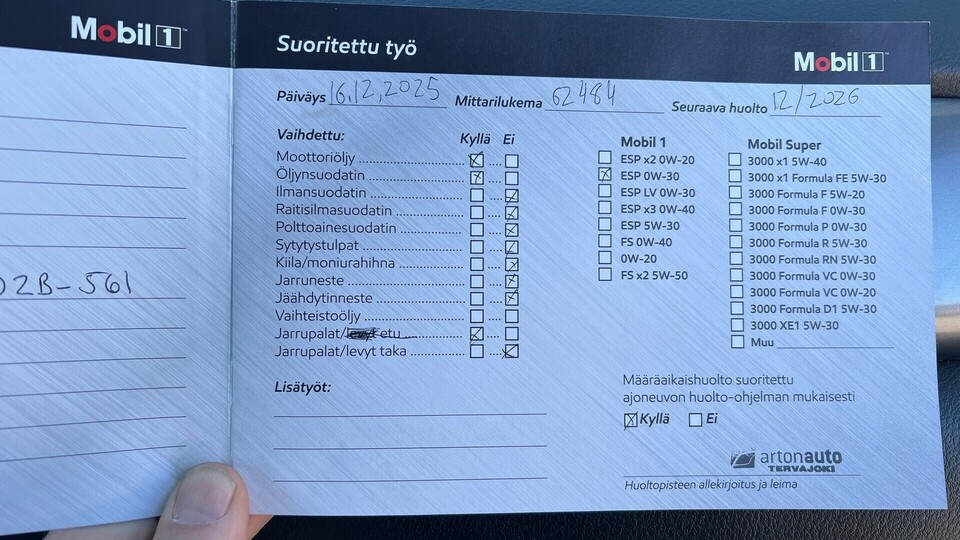 Mobil 1™
02B-561
Suoritettu työ
Mobil 1™
Päiväys 16.12.2025 Mittarilukema 62484 Seuraava huolto 12/2026
Vaihdettu: Kyllä Ei
Moottoriöljy
Öljynsuodatin
Ilmansuodatin
Raitisilmasuodatin
Polttoainesuodatin
Sytytystulpat
Kiila/moniurahihna
Jarruneste
Jäähdytinneste
Vaihteistoöljy
Jarrupalat/levyt etu
Jarrupalat/levyt taka
Lisätyöt:
Mobil 1
ESP x2 0W-20
ESP 0W-30
ESP LV 0W-30
ESP x3 0W-40
ESP 5W-30
FS 0W-40
0W-20
FS x2 5W-50
Mobil Super
3000 x1 5W-40
3000 x1 Formula FE 5W-30
3000 Formula F 5W-20
3000 Formula F 0W-30
3000 Formula P 0W-30
3000 Formula R 5W-30
3000 Formula RN 5W-30
3000 Formula VC 0W-30
3000 Formula VC 0W-20
3000 Formula D1 5W-30
3000 XE1 5W-30
Muu
Määräaikaishuolto suoritettu
ajoneuvon huolto-ohjelman mukaisesti
Kyllä Ei
artonauto
TERVAJOKI
Huoltopisteen allekirjoitus ja leima